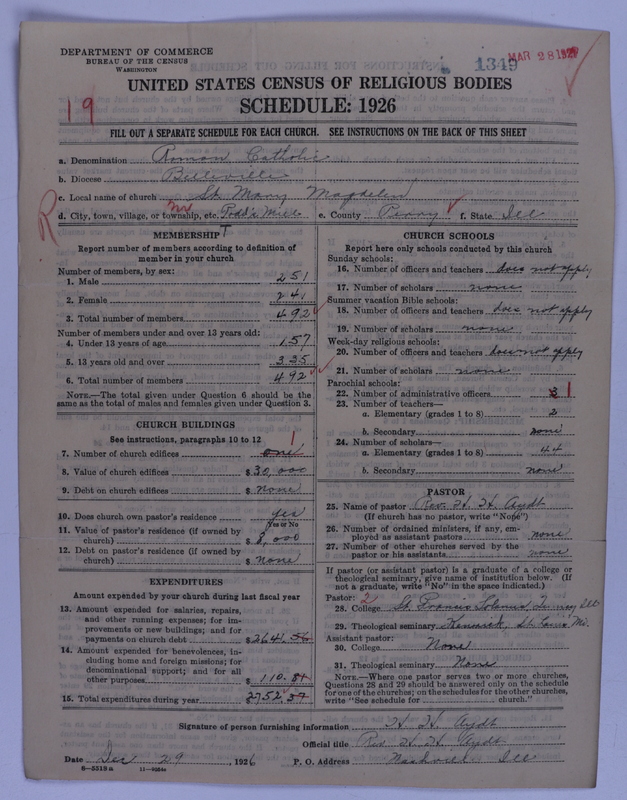 DEPARTMENT OF COMMERCE
BUREAU OF THE CENSUS
WASHINGTON
1349
MAR 28 1927
19
UNITED STATES CENSUS OF RELIGIOUS BODIES
SCHEDULE: 1926
FILL OUT A SEPARATE SCHEDULE FOR EACH CHURCH. SEE INSTRUCTIONS ON THE BACK OF THIS SHEET
a. Denomination Roman Catholic
b. Diocese Belleville
c. Local name of church St. Mary Magdelen
d. City, town, village, or township, etc. Todds Mill e. County Perry f. State Ill
R
MEMBERSHIP
Report number of members according to definition of
member in your church
Number of members, by sex:
1. Male 251
2. Female 241
3. Total number of members 492
Number of members under and over 13 years old:
4. Under 13 years of age 157
5. 13 years old and over 335
6. Total number of members 492
NOTE.—The total given under Question 6 should be the
same as the total of males and females given under Question 3.
CHURCH BUILDINGS
See instructions, paragraphs 10 to 12
7. Number of church edifices one 1
8. Value of church edifices $30,000
9. Debt on church edifices $ None
10. Does church own pastor's residence yes
Yes or No
11. Value of pastor's residence (if owned by
church) $ ,000
12. Debt on pastor's residence (if owned by
church) $ None
EXPENDITURES
Amount expended by your church during last fiscal year
13. Amount expended for salaries, repairs,
and other running expenses; for im-
provements or new buildings; and for
payments on church debt $2641.56
14. Amount expended for benevolences, in-
cluding home and foreign missions; for
denominational support; and for all
other purposes $ 110.81
15. Total expenditures during year 2752.37
CHURCH SCHOOLS
Report here only schools conducted by this church
Sunday schools:
16. Number of officers and teachers does not apply
17. Number of scholars none
Summer vacation Bible schools:
18. Number of officers and teachers does not apply
19. Number of scholars none
Week-day religious schools:
20. Number of officers and teachers does not apply
21. Number of scholars none
Parochial schools:
22. Number of administrative officers 1
23. Number of teachers—
a. Elementary (grades 1 to 8) 2
b. Secondary none
24. Number of scholars—
a. Elementary (grades 1 to 8) 44
b. Secondary none
PASTOR
25. Name of pastor Rev. H. H. Aydt
(If church has no pastor, write "None")
26. Number of ordained ministers, if any, em-
ployed as assistant pastors none
27. Number of other churches served by the
pastor or his assistants none
If pastor (or assistant pastor) is a graduate of a college or
theological seminary, give name of institution below. (If
not a graduate, write "No" in the space indicated.)
Pastor: 2
28. College St. Francis Solanus, Quincy Ill
29. Theological seminary Kenrick, St. Louis Mo.
Assistant pastor:
30. College None
31. Theological seminary None
NOTE.—Where one pastor serves two or more churches,
Questions 28 and 29 should be answered only on the schedule
for one of the churches; on the schedules for the other churches,
write "See schedule for church."
Signature of person furnishing information H. H. Aydt
Official title Rev. H. H. Aydt
Date Dec 29, 1926 P. O. Address Nashville Ill
8—5519a 11—9084